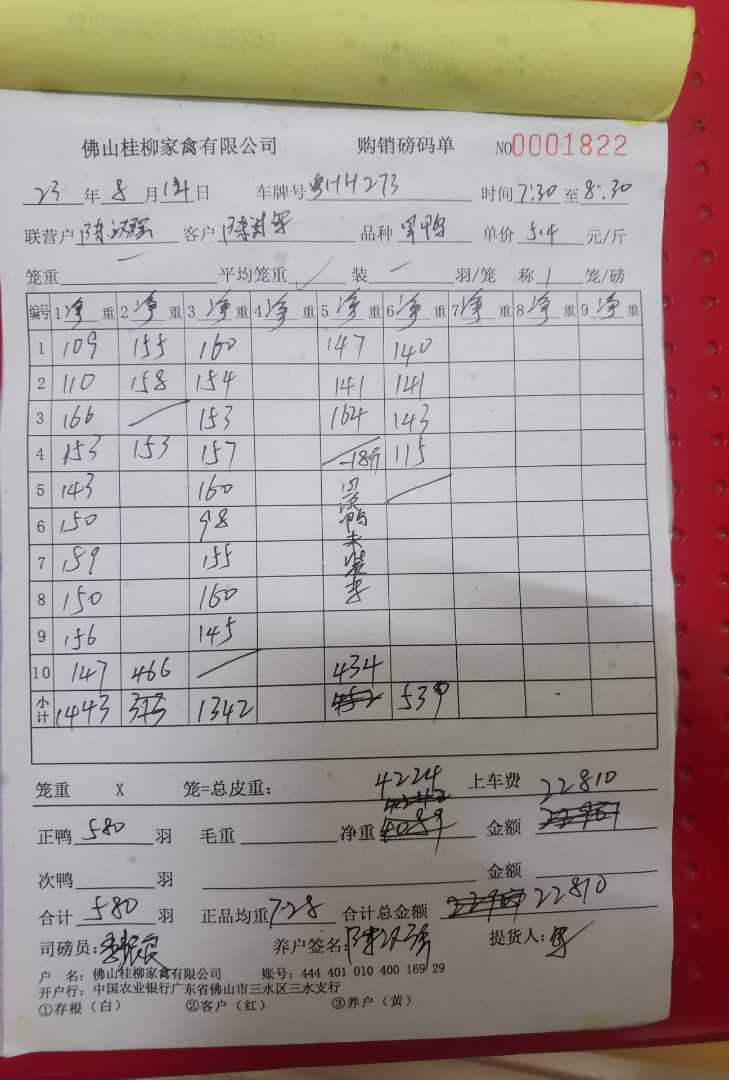 佛山桂柳家禽有限公司 购销磅码单 NO0001822
23 年 8 月 日 车牌号 H273 时间 7:30 至 8:30
联营户 陈汉强 客户 陈 品种 鸭 单价 5.4 元/斤
笼重 — 平均笼重 ✓ 装 — 羽/笼 称 1 笼/磅
编号 1 净 重 2 净 重 3 净 重 4 净 重 5 净 重 6 净 重 7 净 重 8 净 重 9 净 重
1 109 155 160 147 140
2 110 158 154 141 141
3 166 153 164 143
4 153 153 157 -18 115
5 143 160
6 150 98 鸭
7 159 155 未
8 150 160 装
9 156 145
10 147 466 434
小计 1443 313 1342 452 539
笼重 X 笼=总皮重: 4224 上车费 22810
4242
正鸭 580 羽 毛重 净重 4089 金额
次鸭 羽 金额
合计 580 羽 正品均重 7.28 合计总金额 22810
司磅员: 养户签名: 陈汉强 提货人:
户 名: 佛山桂柳家禽有限公司 账号: 444 401 010 400 169 29
开户行: 中国农业银行广东省佛山市三水区三水支行
①存根(白) ②客户(红) ③养户(黄)